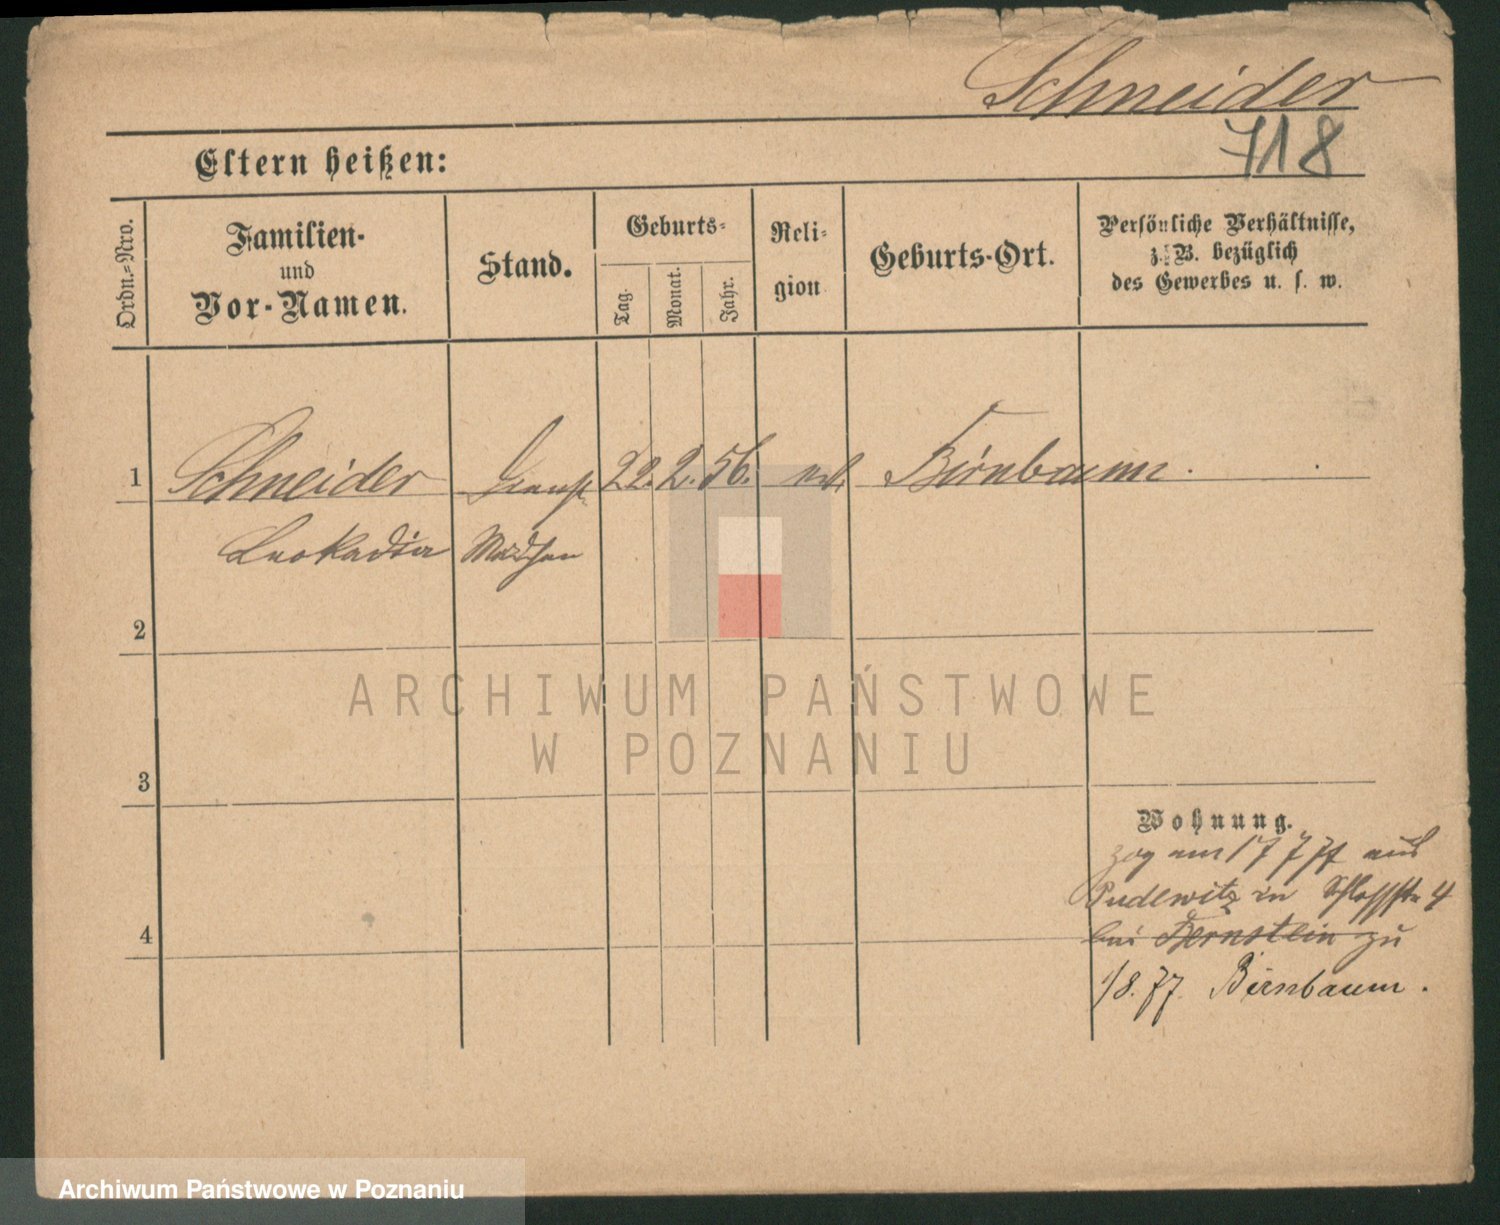 Schneider
718
Eltern heißen:
Ordn.-Nro.
Familien-
und
Vor-Namen.
Stand.
Geburts-
Tag.
Monat.
Jahr.
Reli-
gion
Geburts-Ort.
Persönliche Verhältnisse,
z. B. bezüglich
des Gewerbes u. s. w.
1 Schneider 22. 2. 56. Birnbaum.
Leokadia Mädchen
2
3
4
Wohnung.
zog am 17 7 77 aus
Pudewitz in Schloßstr 4
bei Bernstein zu
1/8. 77. Birnbaum.
ARCHIWUM PAŃSTWOWE
W POZNANIU
Archiwum Państwowe w Poznaniu